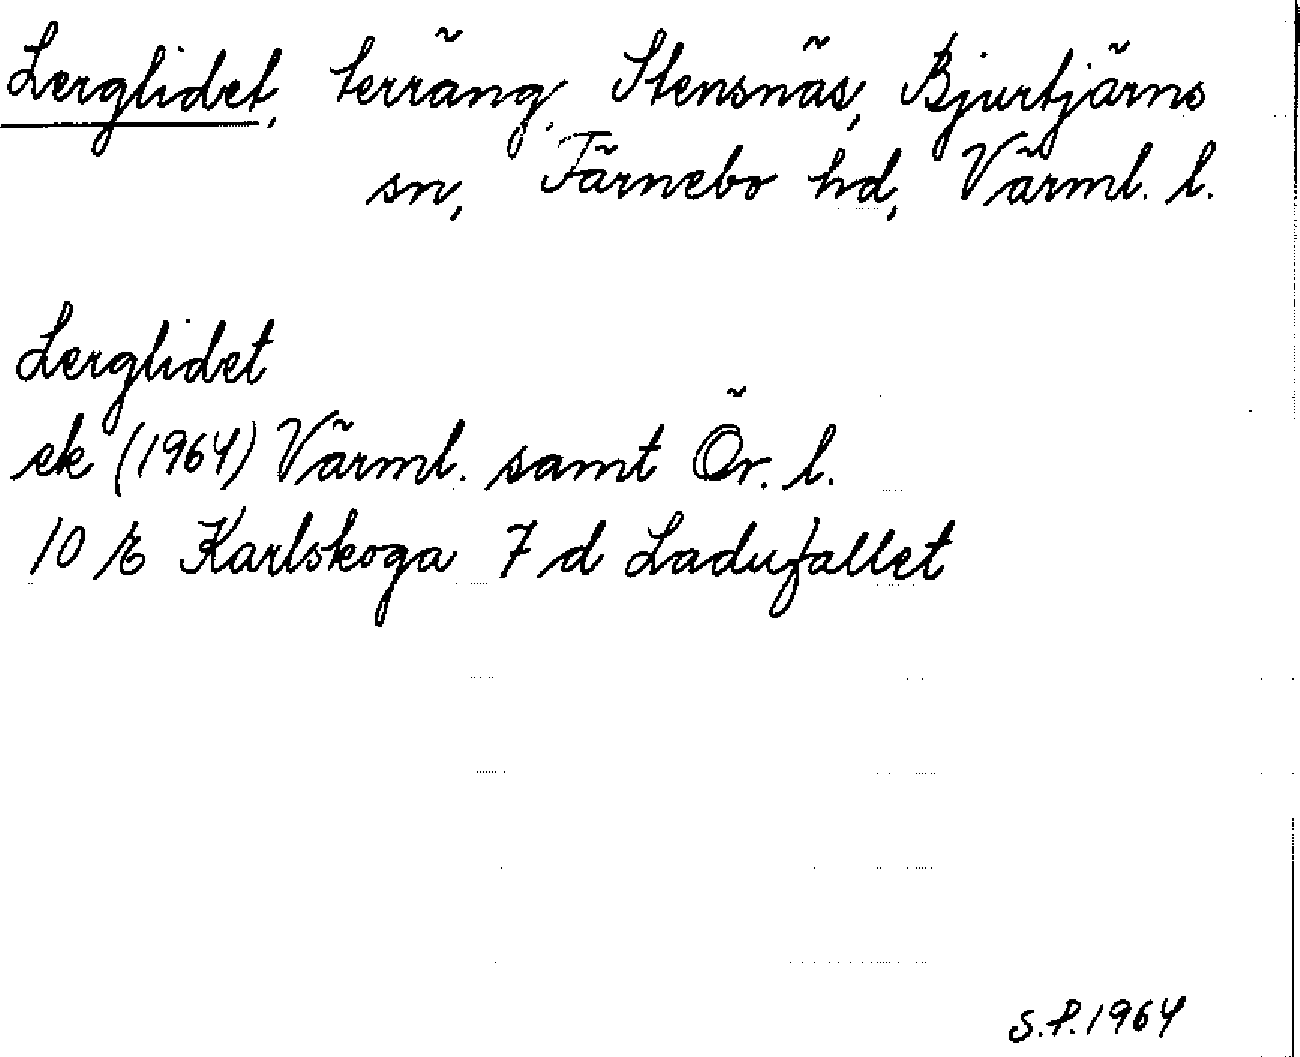 Lerglidet, terräng, Stensnäs, Bjurtjärns
sn, Färnebo hd, Värml. l.
Lerglidet
ek (1964) Värml. samt Ör. l.
10 E Karlskoga 7 d Ladufallet
S.P. 1964